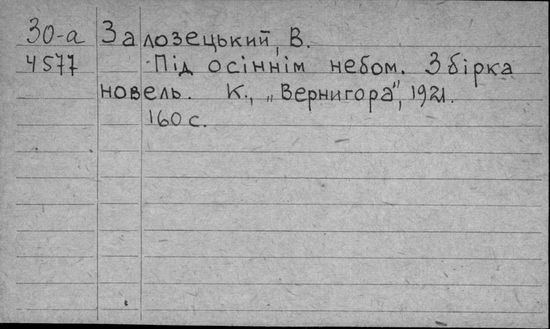 30-а Залозецький, В.
4577 Під осіннім небом. Збірка
новель. К., „Вернигора", 1921.
160 с.